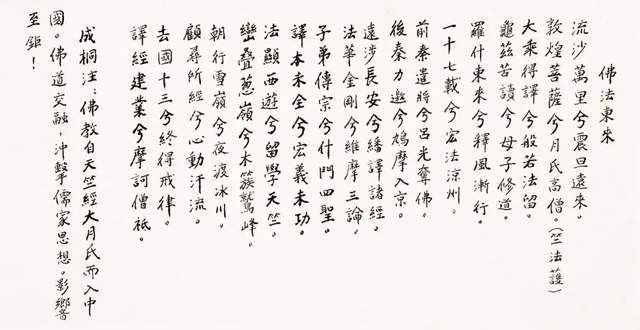 佛法東來
流沙萬里兮震旦遠來。
敦煌菩薩兮月氏高僧。(竺法護)
大乘得譯兮般若法留。
龜茲苦讀兮母子修道。
羅什東來兮釋風漸行。
一十七載兮宏法涼州。
前秦遣將兮呂光奪佛。
後秦力邀兮鳩摩入京。
遠涉長安兮繙譯諸經。
法華金剛兮維摩三論。
子弟傳宗兮什門四聖。
譯本未全兮宏義未功。
法顯西遊兮留學天竺。
巒疊蔥嶺兮木簇鷲峰。
朝行雪嶺兮夜渡冰川。
顧尋所經兮心動汗流。
去國十三兮終得戒律。
譯經建業兮摩訶僧祇。
成桐注：佛教自天竺經大月氏而入中
國。佛道交融，沖擊儒家思想。影響
至鉅！